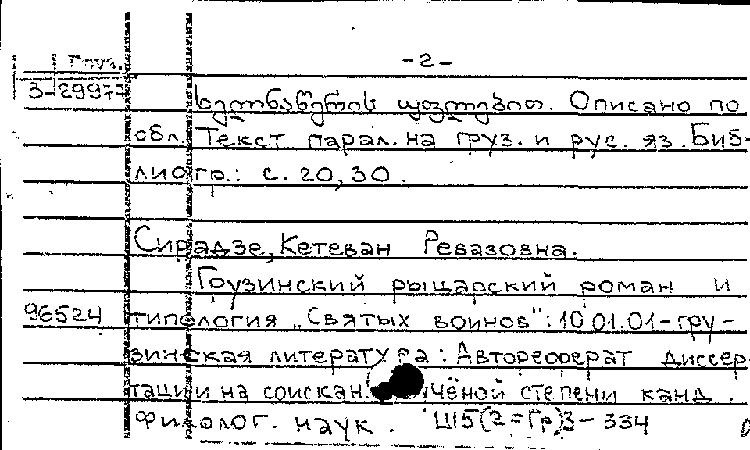 Груз. -2-
3-29977
ხელნაწერის უფლებით. Описано по
обл. Текст парал. на груз. и рус. яз. Биб-
лиогр.: с. 20,30.
Сирадзе, Кетеван Ревазовна.
Грузинский рыцарский роман и
96524 типология „Святых воинов": 10.01.01-гру-
зинская литература: Автореферат диссер-
тации на соискан. учёной степени канд.
филолог. наук. Ш5(2=Гр)3-334